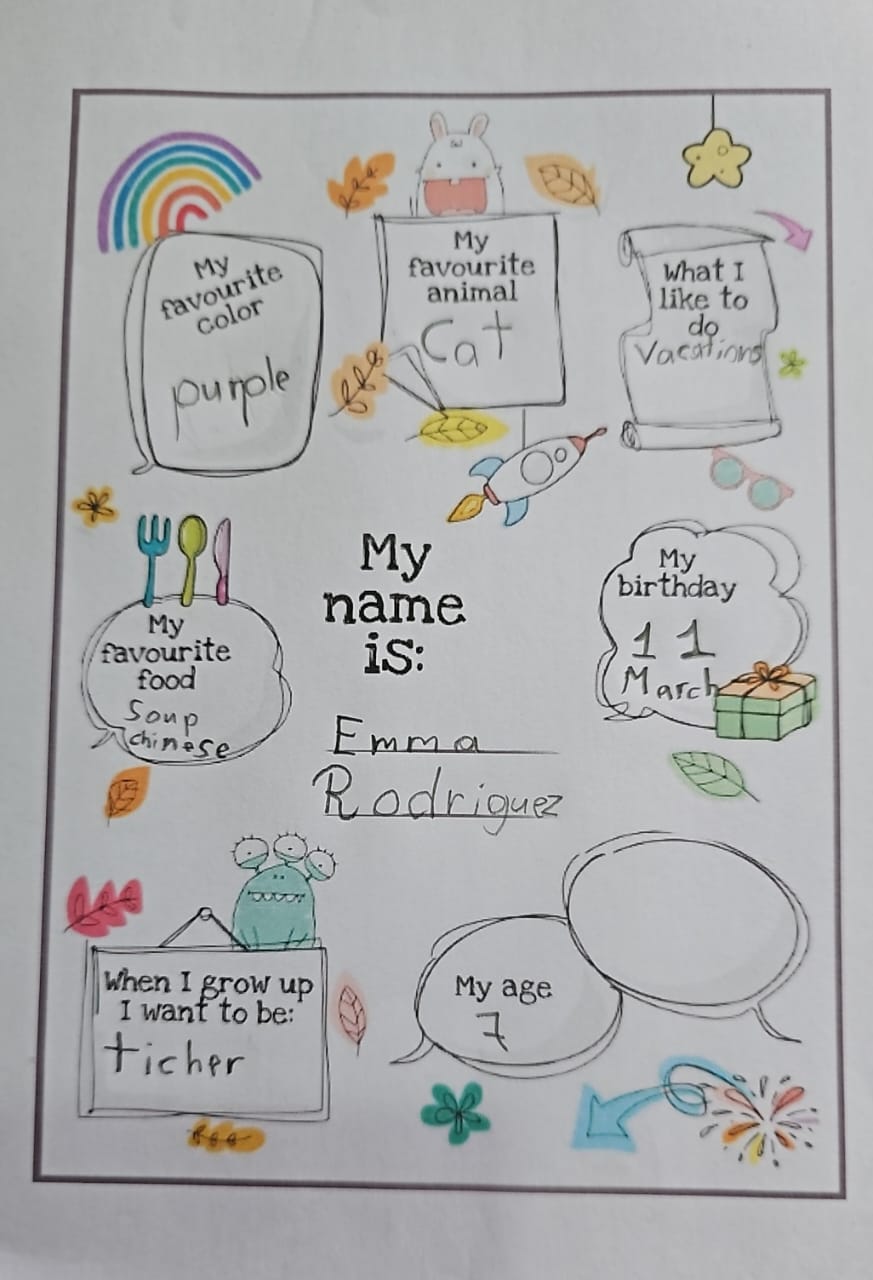 My
favourite
color
purple
My
favourite
animal
Cat
What I
like to
do
Vacations
My
favourite
food
Soup
chinese
My
name
is:
Emma
Rodriguez
My
birthday
11
March
When I grow up
I want to be:
ticher
My age
7